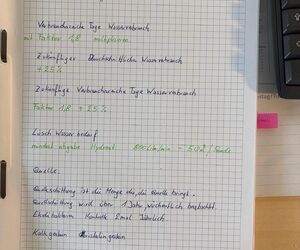 Verbraucherreiche Tage Wasserverbrauch
mit Faktor 1,8 multiplizieren
Zukünftiger Durchschnittlicher Wasserverbrauch
+ 25 %
Zukünftige Verbraucherreiche Tage Wasserverbrauch
Faktor 1,8 + 25 %
Lösch Wasser bedarf
mindest abgabe Hydrant
Quelle:
Quellschüttung ist die Menge die, die Quelle bringt.
Quellschüttung wird über 1 Jahr, wöchentlich beobachtet.
Kontrolle 2 mal Jährlich